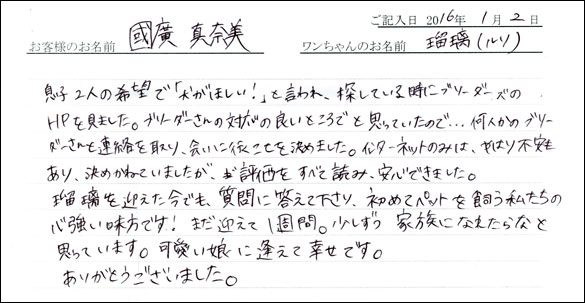 ご記入日 2016年 1月 2日
お客様のお名前 國廣 真奈美 ワンちゃんのお名前 瑠璃(ルリ)
息子2人の希望で「犬がほしい!」と言われ、探している時にブリーダーズの
HPを見ました。ブリーダーさんの対応の良いところでと思っていたので…何人かのブリー
ダーさんと連絡を取り、会いに行くことを決めました。インターネットのみは、やはり不安も
あり、決めかねていましたが、お評価をすべて読み、安心できました。
瑠璃を迎えた今でも、質問に答えて下さり、初めてペットを飼う私たちの
心強い味方です!まだ迎えて1週間。少しずつ 家族になれたらなと
思っています。可愛い娘に逢えて幸せです。
ありがとうございました。